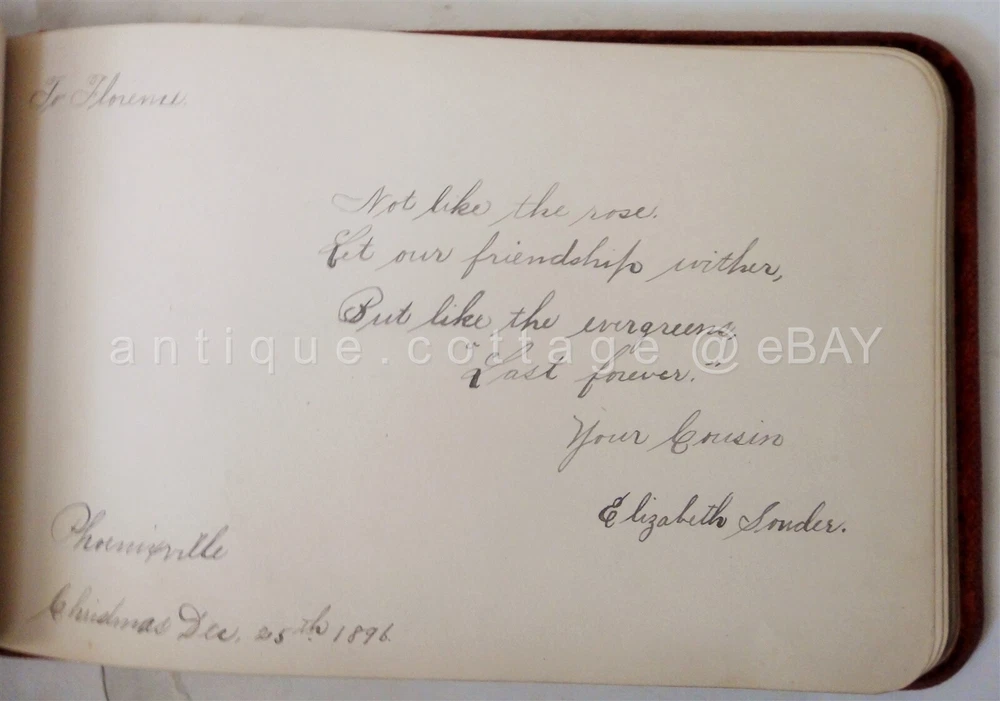 To Florence.
Not like the rose.
Let our friendship wither,
But like the evergreens,
"Last forever."
antique.cottage @ eBAY
Your Cousin
Elizabeth Souder.
Phoenixville
Christmas Dec. 25th 1896.